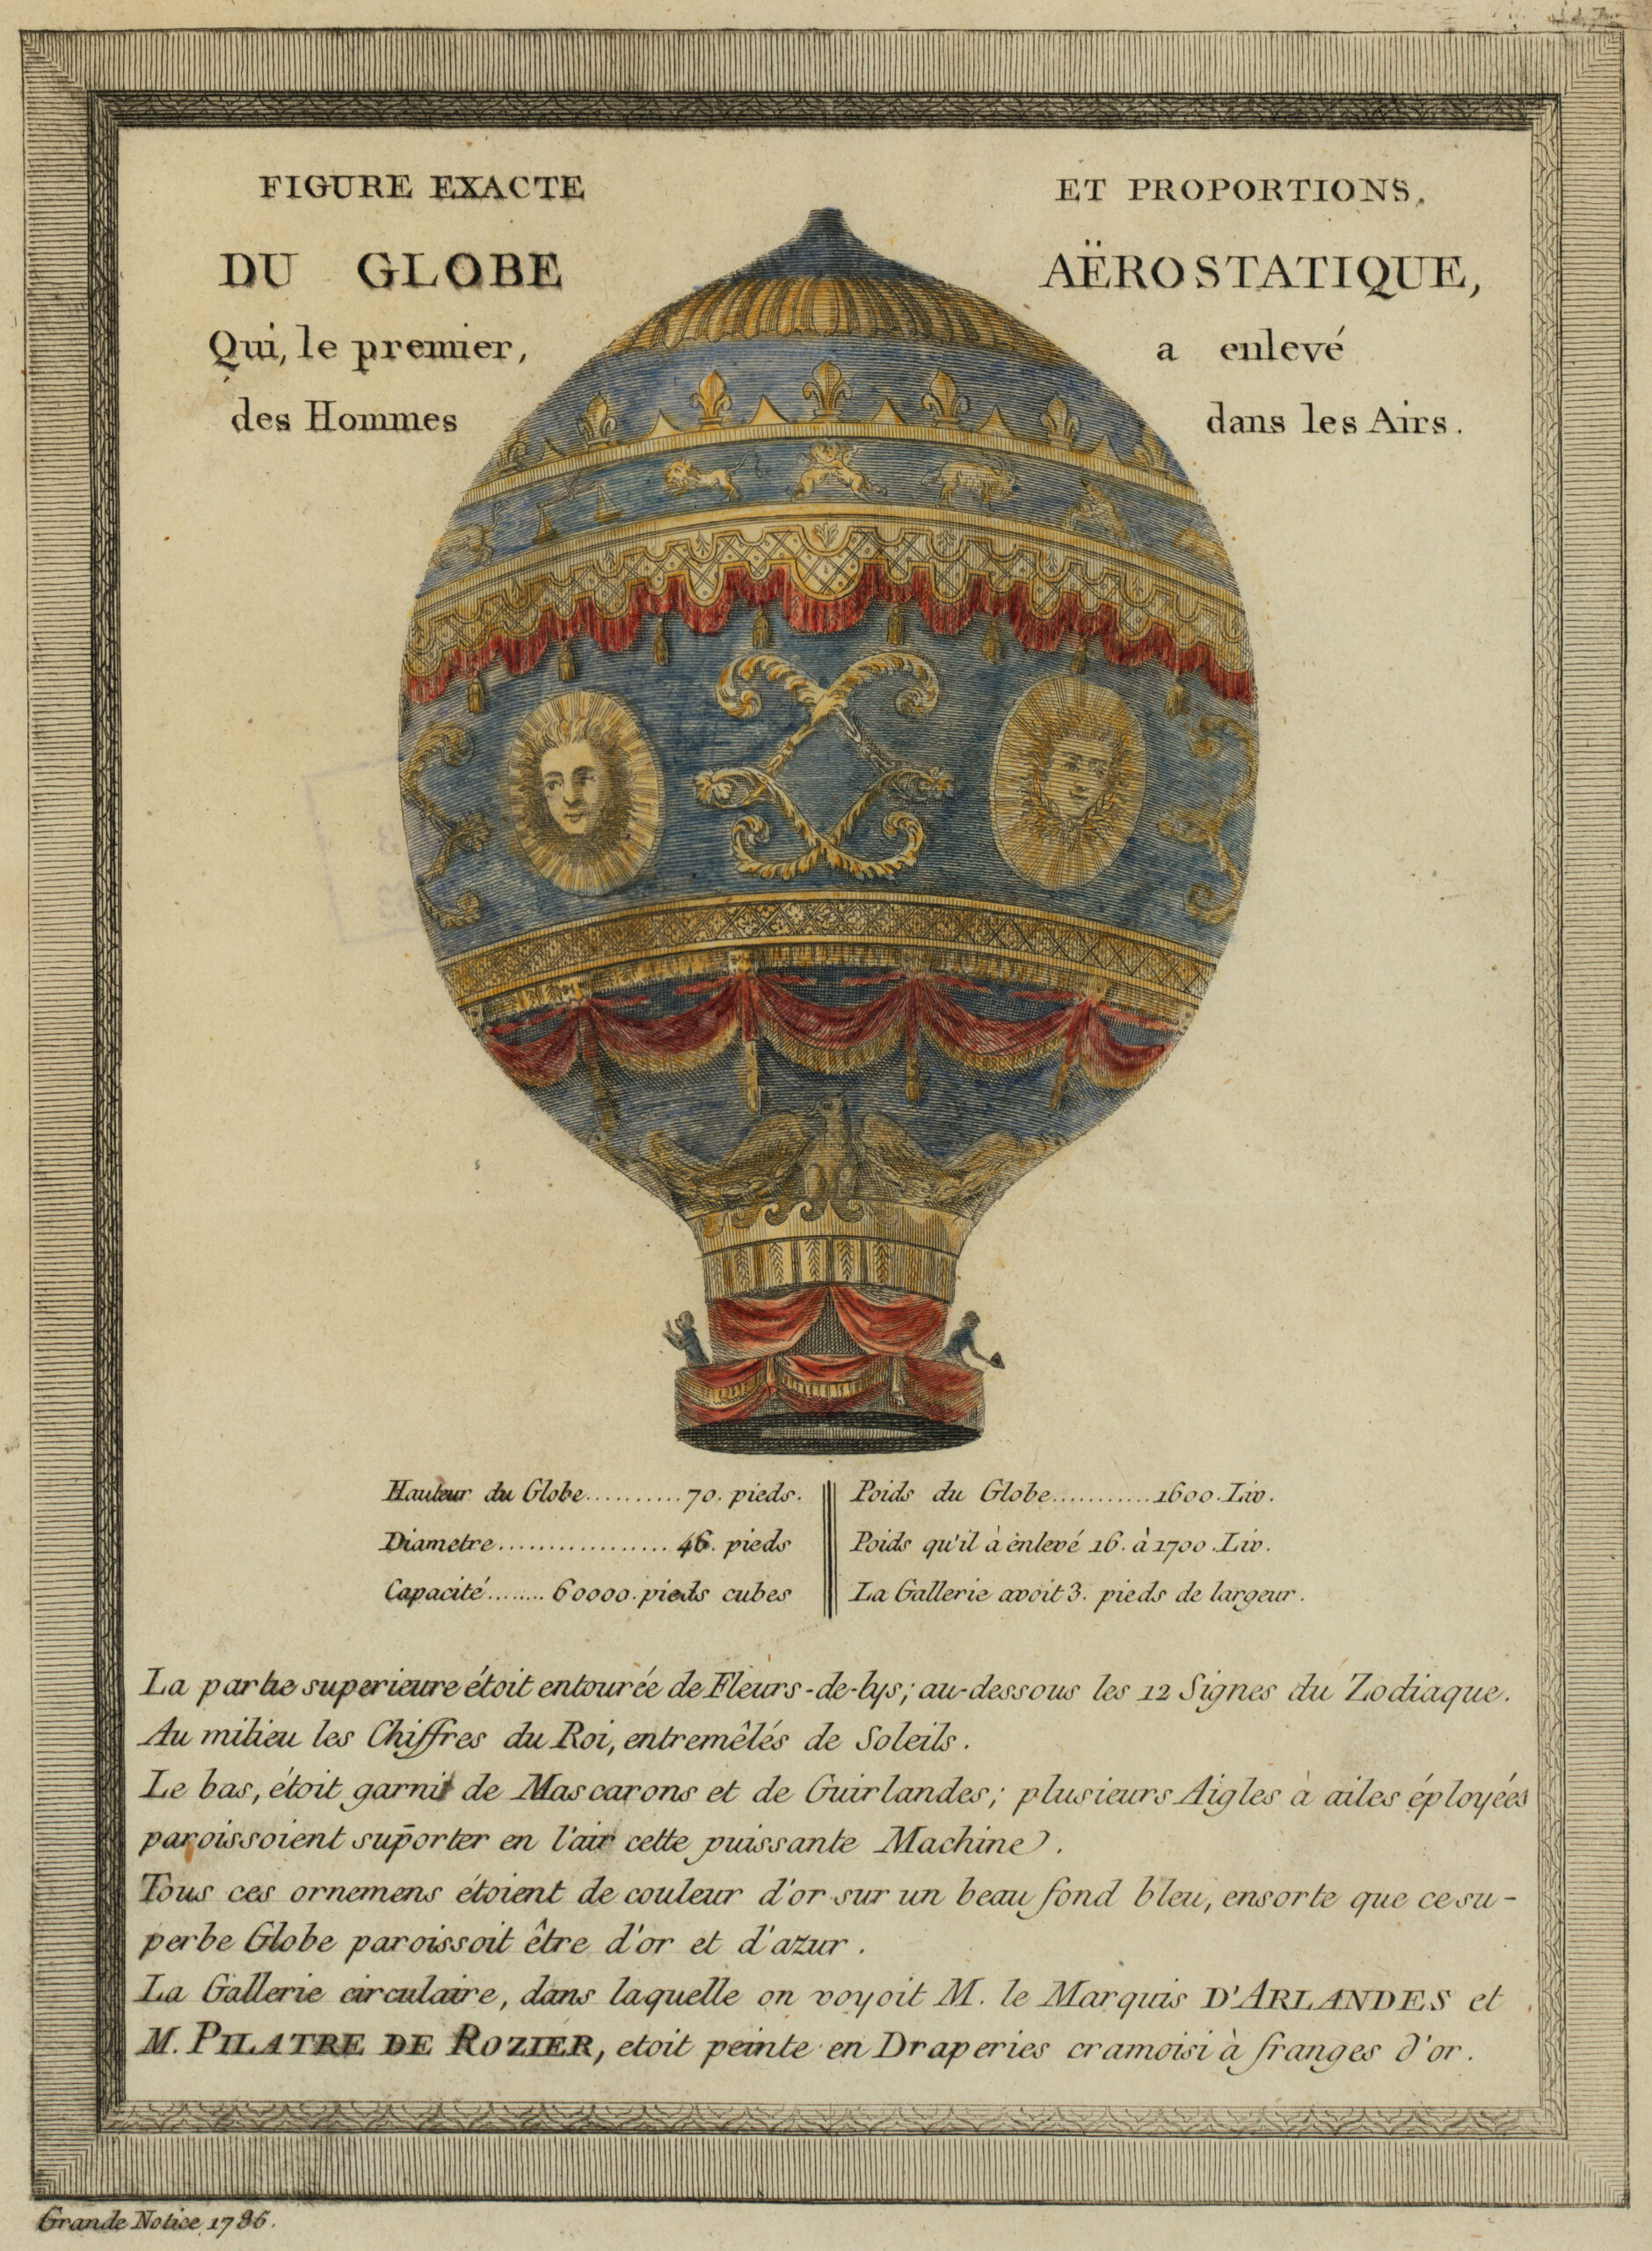 FIGURE EXACTE ET PROPORTIONS,
DU GLOBE AËROSTATIQUE,
Qui, le premier, a enlevé
des Hommes dans les Airs.
Hauteur du Globe..........70. pieds.
Diametre................. 46. pieds
Capacité........ 60000. pieds cubes
Poids du Globe...........1600. Liv.
Poids qu'il à enlevé 16. à 1700. Liv.
La Gallerie avoit 3. pieds de largeur.
La partie superieure étoit entourée de Fleurs-de-lys; au-dessous les 12 Signes du Zodiaque.
Au milieu les Chiffres du Roi, entremêlés de Soleils.
Le bas, étoit garni de Mascarons et de Guirlandes; plusieurs Aigles à ailes éployées
paroissoient suporter en l'air cette puissante Machine.
Tous ces ornemens étoient de couleur d'or sur un beau fond bleu, ensorte que ce su-
perbe Globe paroissoit être d'or et d'azur.
La Gallerie circulaire, dans laquelle on voyoit M. le Marquis D'ARLANDES et
M. PILATRE DE ROZIER, etoit peinte en Draperies cramoisi à franges d'or.
Grande Notice 1786.